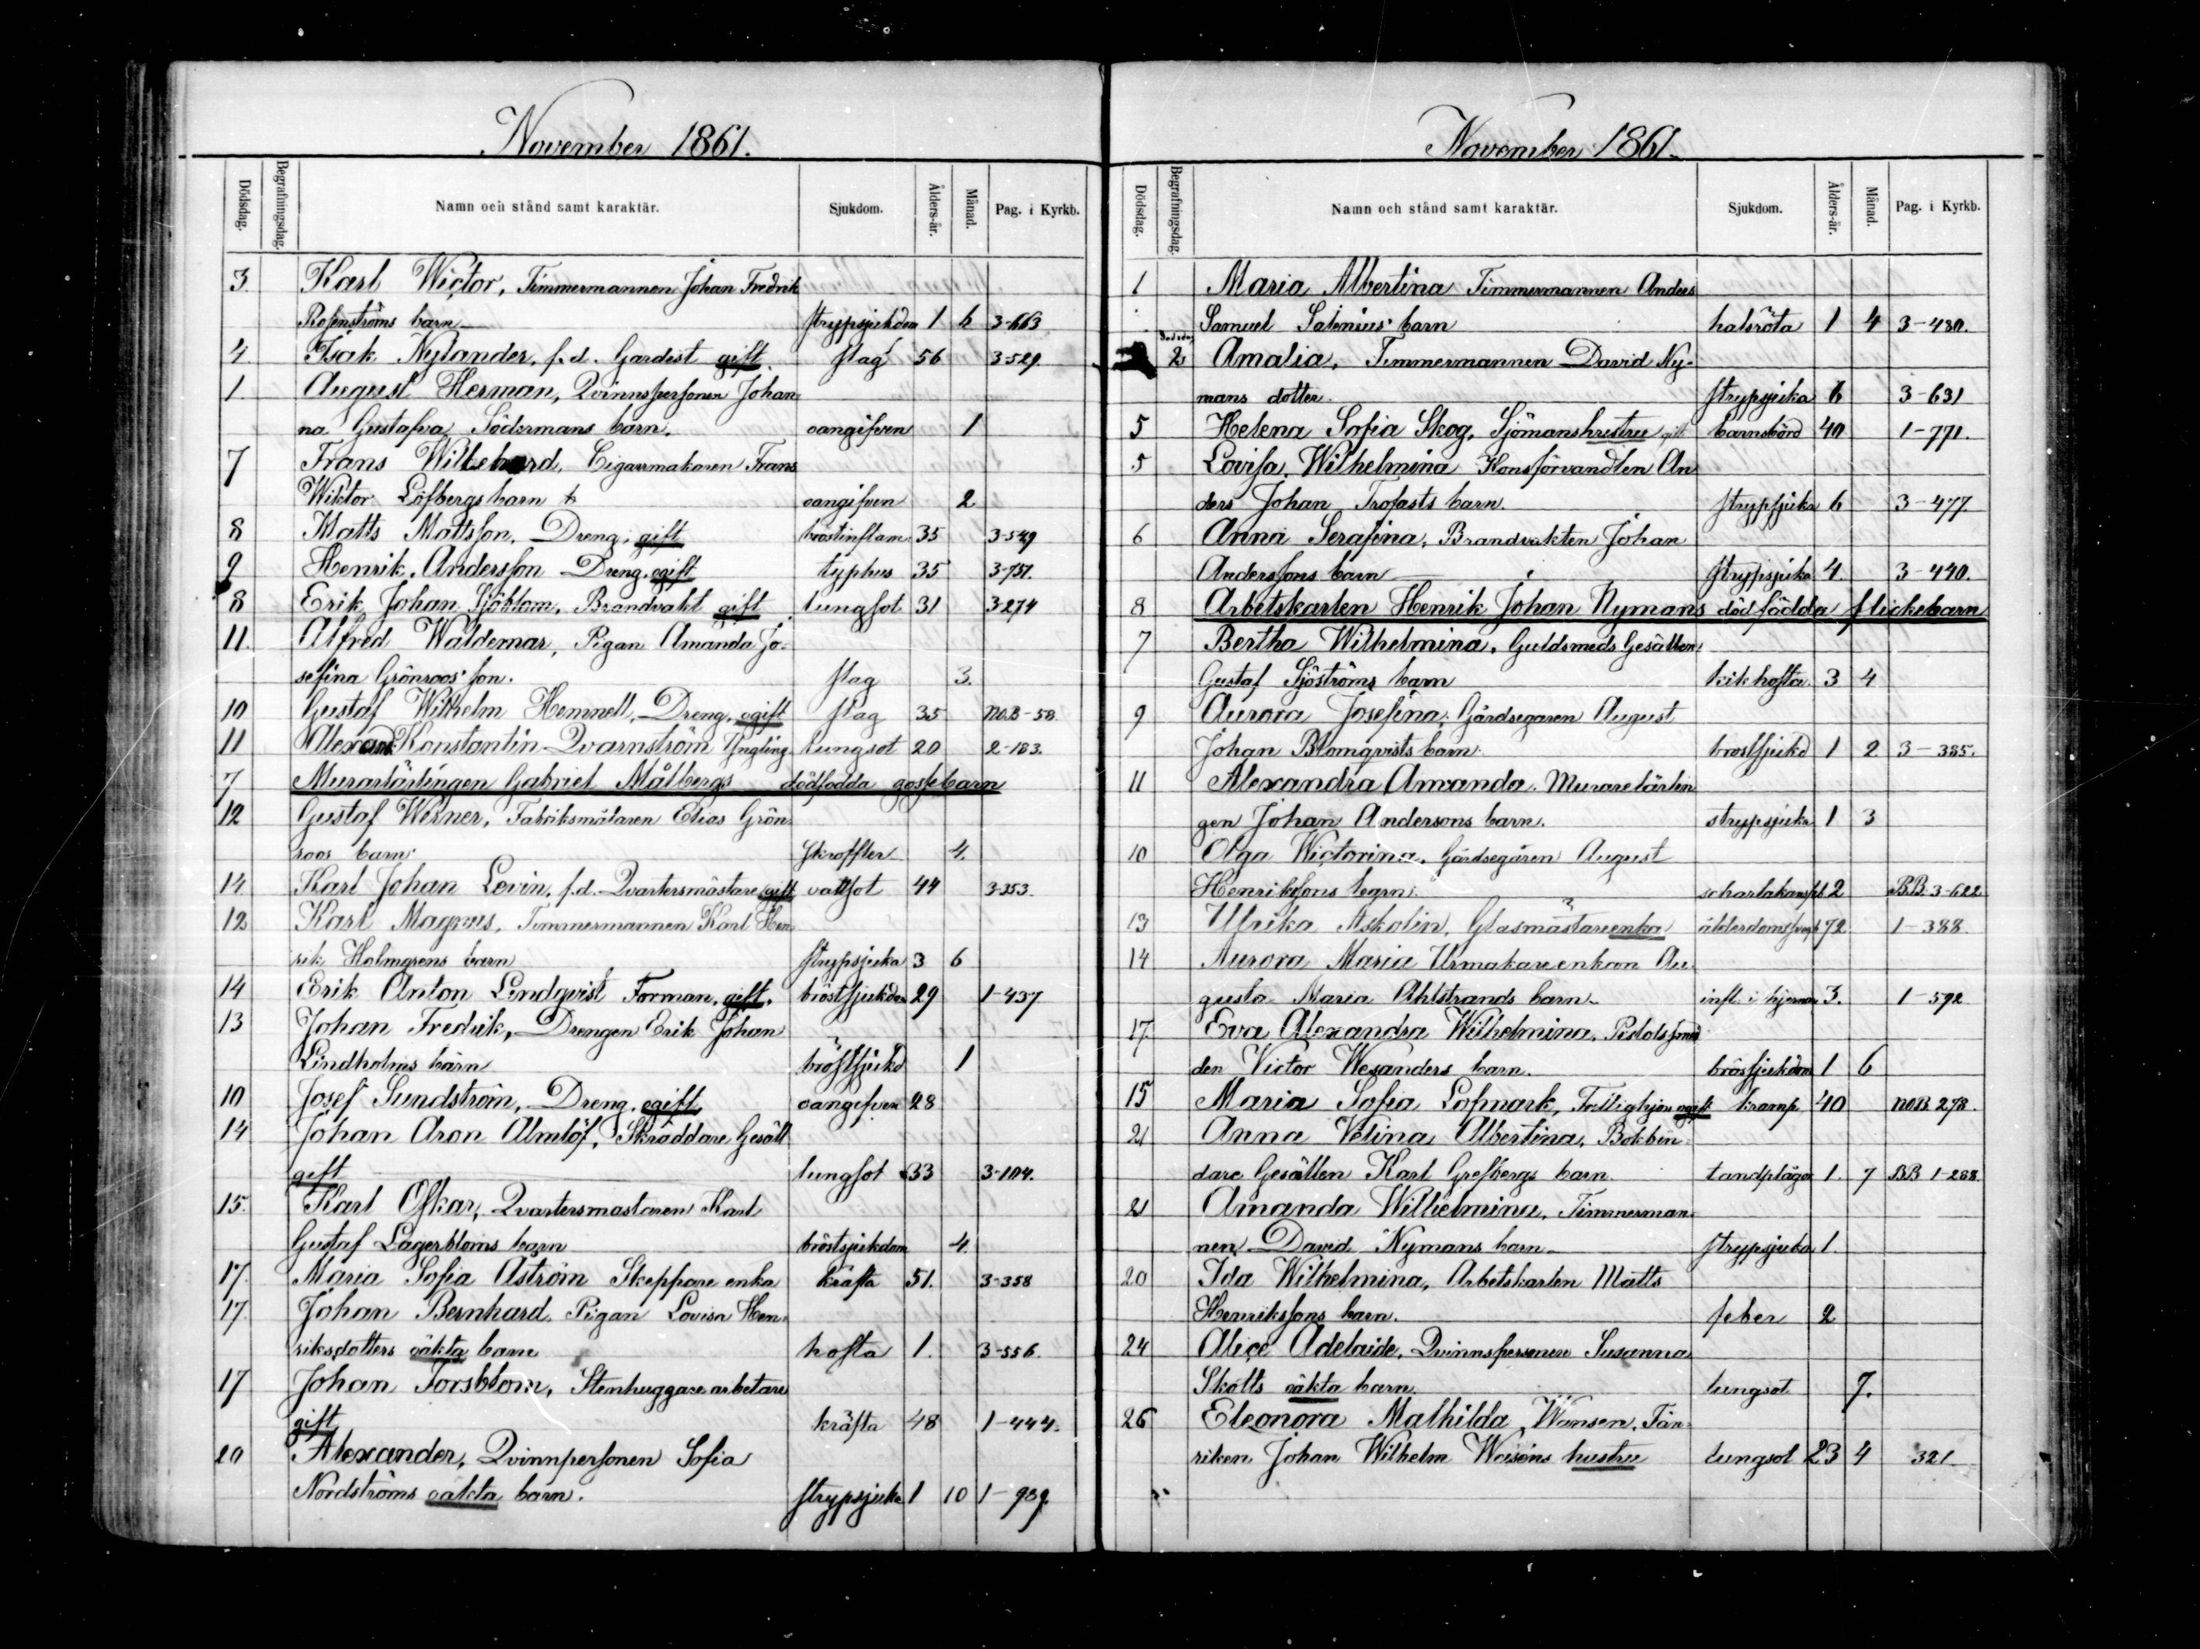 November 1861.
Dödsdag. Begrafningsdag. Namn och stånd samt karaktär. Sjukdom. Ålders-år. Månad. Pag. i Kyrkb.
3. Karl Wictor, Timmermannen Johan Fredrik
Rosenströms barn strypsjukdom 1 6 3-663
4 Isak Nylander, f.d. Gardist gift slag 56 3-529.
1. August Herman, Qvinnspersonen Johan-
na Gustafva Södermans barn. oangifven 1
7 Frans Wilhehard, Cigarrmakaren Frans
Wiktor Löfbergs barn oangifven 2
8 Matts Mattsson, Dreng, gift bröstinflam. 35 3-549
9 Henrik Andersson Dreng, ogift typhus 35 3-757.
8 Erik Johan Sjöblom, Brandvakt gift lungsot 31 3-274
11. Alfred Waldemar, Pigan Amanda Jo-
sefina Grönroos' son. slag 3.
10 Gustaf Wilhelm Hemnell, Dreng, ogift slag 35 No.B-58
11 Alexand. Konstantin Qvarnström Yngling lungsot 20 2-183.
7 Murarlärlingen Gabriel Målbergs dödfödda gossebarn
12 Gustaf Werner, Fabriksmålaren Elias Grön-
roos barn. skroffler 4.
14 Karl Johan Levin, f.d. Qvartersmästare gift vattsot 44 3-353.
12 Karl Magnus, Timmermannen Karl Hen-
rik Holmgrens barn strypsjuka 3 6
14 Erik Anton Lindqvist Forman, gift. bröstsjukdom 29 1-437
13 Johan Fredrik, Drengen Erik Johan
Lindholms barn bröstsjukd 1
10 Josef Sundström, Dreng, ogift oangifven 28
14 Johan Aron Almlöf, Skräddare Gesäll
gift lungsot 33 3-104.
15. Karl Oskar, Qvartersmästaren Karl
Gustaf Lagerbloms barn bröstsjukdom 4.
17. Maria Sofia Åström Skeppare enka kräfta 51. 3-358
17. Johan Bernhard, Pigan Lovisa Hen-
riksdotters oäkta barn hosta 1. 3-556.
17 Johan Forsblom, Stenhuggare arbetare
gift kräfta 48 1-444.
20 Alexander, Qvinnpersonen Sofia
Nordströms oäkta barn. strypsjuka 1 10 1-939.
November 1861.
Dödsdag. Begrafningsdag. Namn och stånd samt karaktär. Sjukdom. Ålders-år. Månad. Pag. i Kyrkb.
1 Maria Albertina Timmermannen Anders
Samuel Salenius' barn halsröta 1 4 3-480.
2 Amalia, Timmermannen David Ny-
mans dotter. strypsjuka 6 3-631
5 Helena Sofia Skog, Sjömanshustru gift barnsbörd 40 1-771.
5 Lovisa Wilhelmina Konstförvandten An
ders Johan Trofasts barn. strypsjuka 6 3-477
6 Anna Serafina, Brandvakten Johan
Anderssons barn strypsjuka 4. 3-440.
8 Arbetskarlen Henrik Johan Nymans död födda flickebarn
7 Bertha Wilhelmina, Guldsmeds Gesällen
Gustaf Sjöströms barn kikhosta. 3 4
9 Aurora Josefina, Gårdsegaren August
Johan Blomqvists barn. bröstsjukd 1 2 3-385.
11 Alexandra Amanda. Murarelärlin
gen Johan Andersons barn. strypsjuka 1 3
10 Olga Wictorina, Gårdsegaren August
Henrikssons barn. scharlakansfeb 2 B.B. 3-622
13 Ulrika Askolin, Glasmästareenka ålderdomssvagh 72 1-388.
14 Aurora Maria Urmakareenkan Au-
gusta Maria Ahlstrands barn. infl. i hjernan 3. 1-592
17. Eva Alexandra Wilhelmina, Pistolsme
den Victor Wesanders barn. bröstsjukdom 1 6
15 Maria Sofia Lofmark, Fattighjon ogift kramp 40 No.B. 278.
21 Anna Velina Albertina, Bokbin-
dare Gesällen Karl Grefbergs barn. tandplågor 1. 7 B.B 1-288.
21 Amanda Wilhelmina, Timmerman-
nen David Nymans barn strypsjuka 1.
20 Ida Wilhelmina, Arbetskarlen Matts
Henrikssons barn. feber 2
24 Alice Adelaide, Qvinnspersonen Susanna
Skotts oäkta barn. lungsot 7.
26 Eleonora Mathilda Wansen, Fän-
riken Johan Wilhelm hustru lungsot 23 4 321